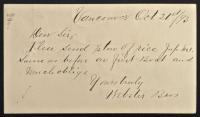 Vancouver Oct 21st/93
Dear Sir,
Please send plan of rice
same as before on first Boat and
much oblige
Yours truly
Webster Bros